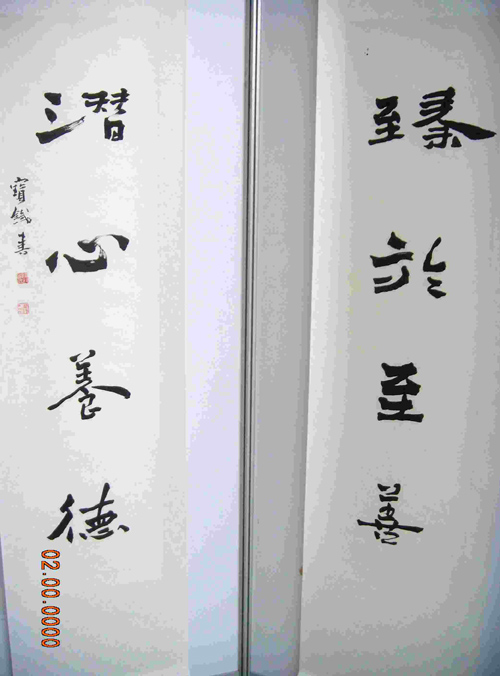 臻於至善
潛心養德
寶鐵書
02.00.0000